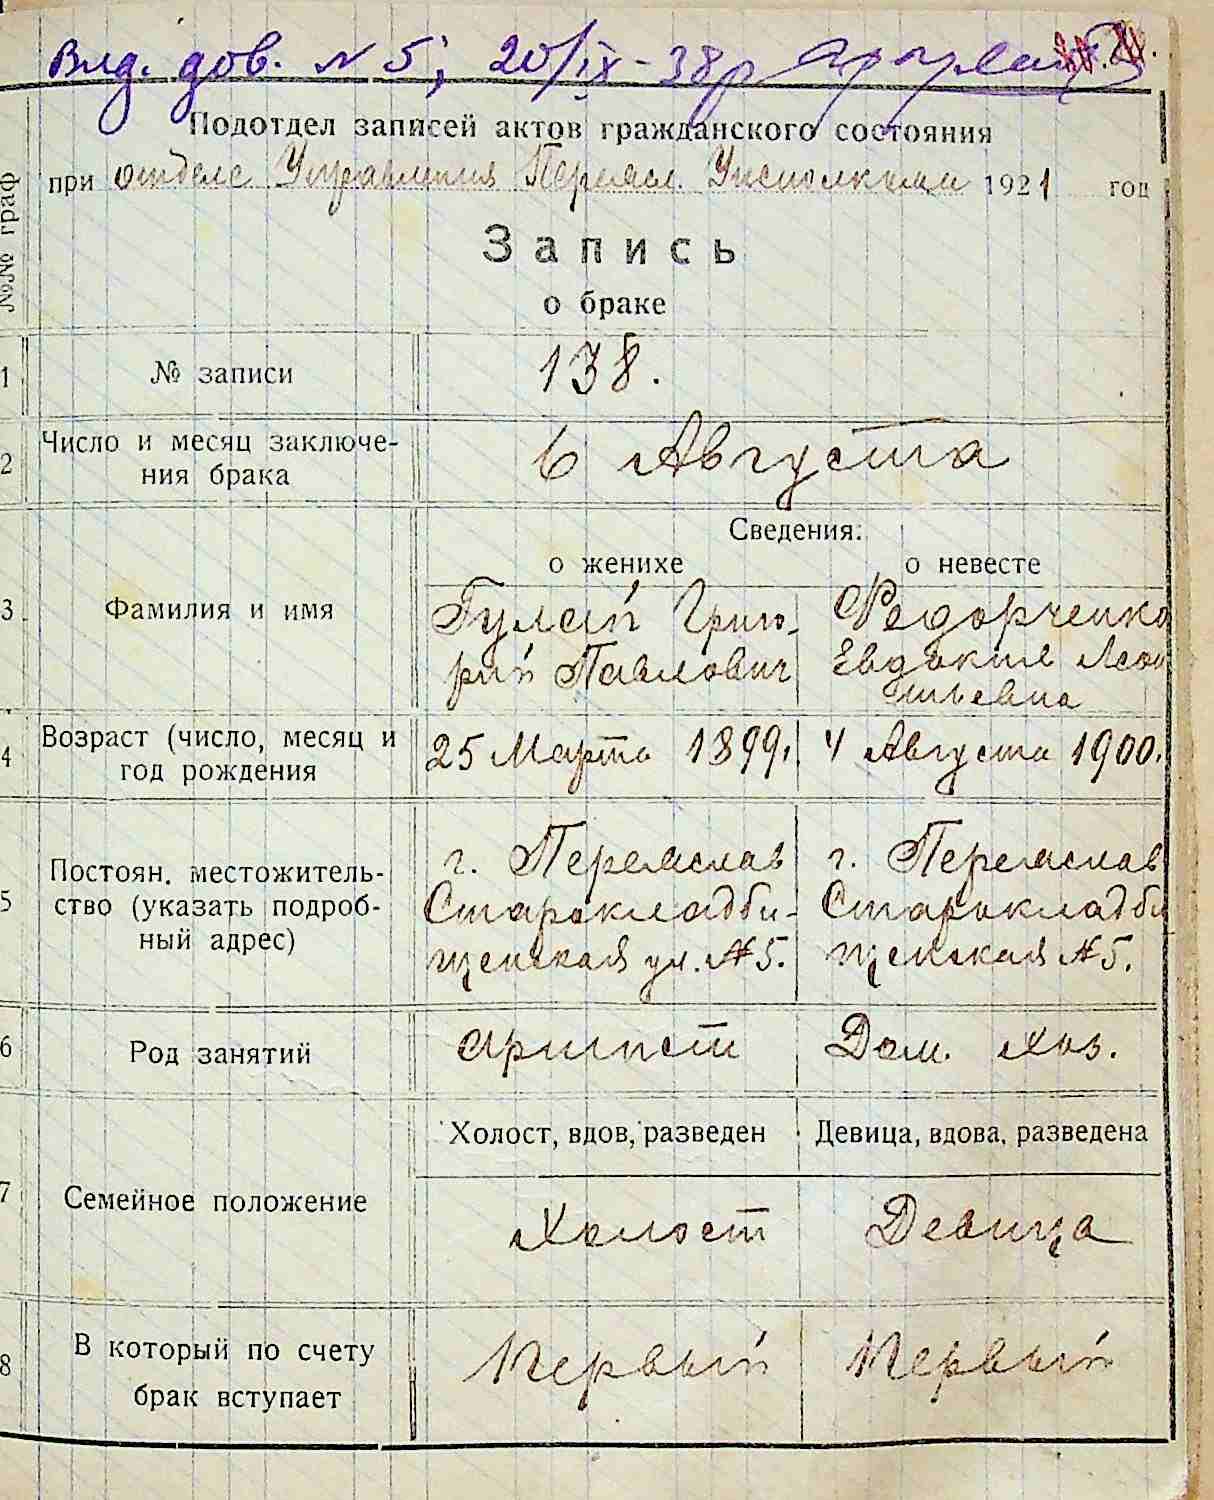 Вид. дов. N 5; 20/ІХ-38р
Подотдел записей актов гражданского состояния
при отделе Управления Переясл. Уисполкома 1921 год
№№ граф
Запись
о браке
1 № записи 138.
2 Число и месяц заключе-
ния брака 6 Августа
Сведения:
о женихе о невесте
3 Фамилия и имя Гулай Григо- Федорченко
рий Павлович Евдокия Леон
тьевна
4 Возраст (число, месяц и
год рождения 25 Марта 1899. 4 Августа 1900.
г. Переяслав г. Переяслав
5 Постоян. местожитель-
ство (указать подроб-
ный адрес) Старокладби- Старокладби
щенская ул. №5. щенская №5.
6 Род занятий Артист Дом. хоз.
Холост, вдов, разведен Девица, вдова, разведена
7 Семейное положение Холост Девица
8 В который по счету
брак вступает Первый Первый